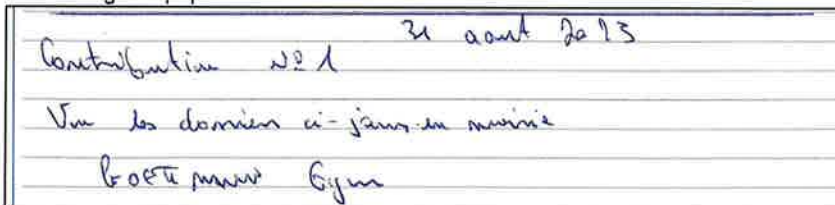 31 aout 2023
Contribution N° 1
Vu les dossiers ci-joins en mairie